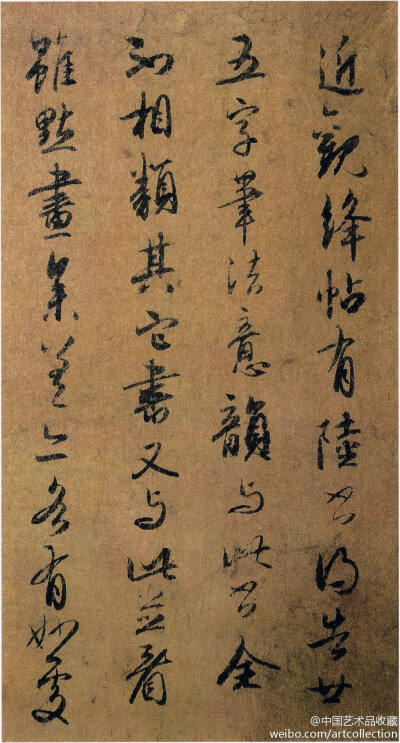 近觀絳帖有陸書得告廿
五字筆法意韻与此書全
不相類其它書又与此並看
雖點畫參差亦各有妙處
@中国艺术品收藏
weibo.com/artcollection